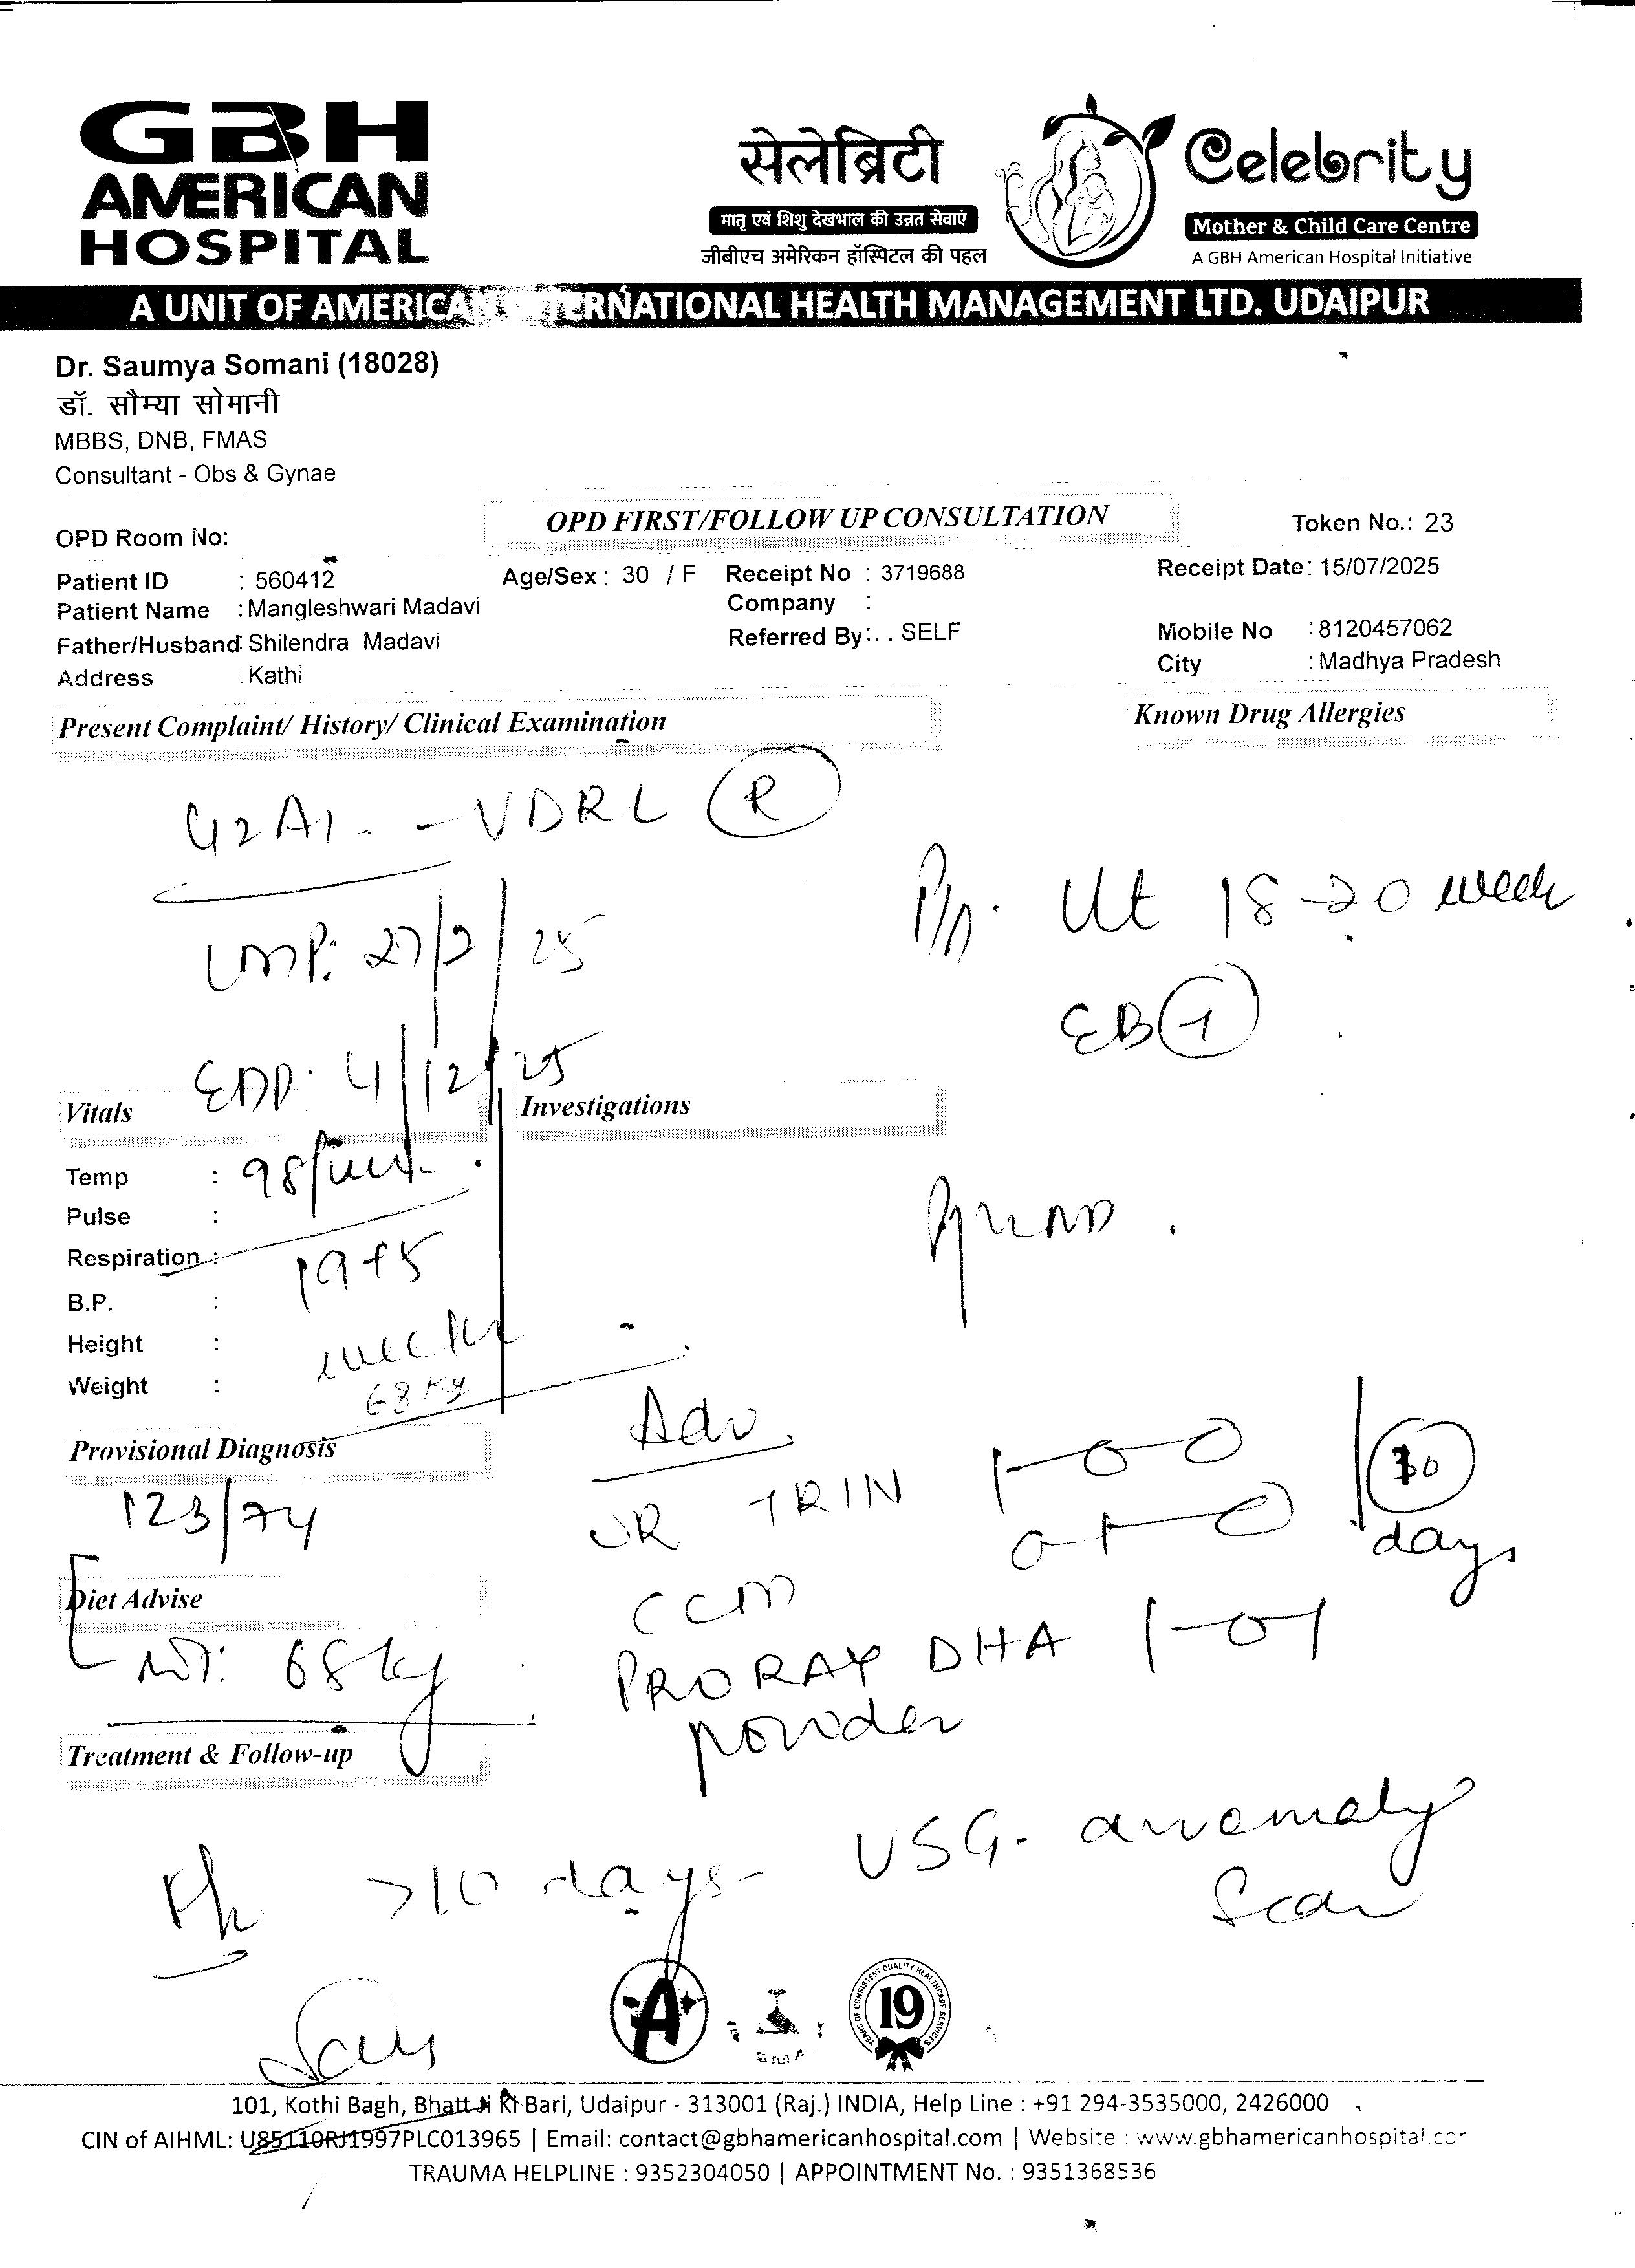 GBH
AMERICAN
HOSPITAL
सेलेब्रिटी
मातृ एवं शिशु देखभाल की उन्नत सेवाएं
जीबीएच अमेरिकन हॉस्पिटल की पहल
Celebrity
Mother & Child Care Centre
A GBH American Hospital Initiative
A UNIT OF AMERICAN INTERNATIONAL HEALTH MANAGEMENT LTD. UDAIPUR
Dr. Saumya Somani (18028)
डॉ. सौम्या सोमानी
MBBS, DNB, FMAS
Consultant - Obs & Gynae
OPD Room No:
OPD FIRST/FOLLOW UP CONSULTATION
Token No.: 23
Patient ID : 560412 Age/Sex : 30 / F Receipt No : 3719688 Receipt Date: 15/07/2025
Patient Name : Mangleshwari Madavi Company :
Father/Husband: Shilendra Madavi Referred By:. . SELF Mobile No : 8120457062
Address : Kathi City : Madhya Pradesh
Present Complaint/ History/ Clinical Examination Known Drug Allergies
G2A1. - VDRL R
P/A. Ut 18-20 week
LMP: 27/2/25
EB
EDD. 4/12/25
Vitals Investigations
Temp : 98
Pulse :
Respiration :
19+5
B.P. :
Height :
week
Weight : 68 Kg
Adv.
Provisional Diagnosis
123/74
TRIN 1-0-0
0-1-0
30
days
Diet Advise
CCM
WT: 68 kg
PRORAY DHA 1-0-1
powder
Treatment & Follow-up
USG- anomaly
Scan
>10 days-
A+
YEARS OF CONSISTENT QUALITY HEALTHCARE SERVICES
19
101, Kothi Bagh, Bhatt Ji Ki Bari, Udaipur - 313001 (Raj.) INDIA, Help Line : +91 294-3535000, 2426000
CIN of AIHML: U85110RJ1997PLC013965 | Email: contact@gbhamericanhospital.com | Website : www.gbhamericanhospital.com
TRAUMA HELPLINE : 9352304050 | APPOINTMENT No. : 9351368536